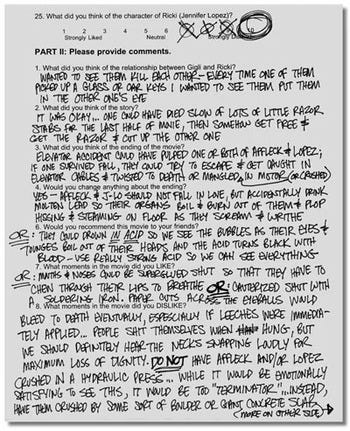 25. What did you think of the character of Ricki (Jennifer Lopez)?
1 2 3 4 5 6
Strongly Liked Neutral Strongly
PART II: Please provide comments.
1. What did you think of the relationship between Gigli and Ricki?
WANTED TO SEE THEM KILL EACH OTHER - EVERY TIME ONE OF THEM
PICKED UP A GLASS OR CAR KEYS I WANTED TO SEE THEM PUT THEM
IN THE OTHER ONE'S EYE
2. What did you think of the story?
IT WAS OKAY... ONE COULD HAVE DIED SLOW OF LOTS OF LITTLE RAZOR
STABS FOR THE LAST HALF OF MOVIE, THEN SOMEHOW GET FREE &
GET THE RAZOR & CUT UP THE OTHER ONE
3. What did you think of the ending of the movie?
ELEVATOR ACCIDENT COULD HAVE PULPED ONE OR BOTH OF AFFLECK & LOPEZ;
IF ONE SURVIVED FALL, THEY COULD TRY TO ESCAPE & GET CAUGHT IN
ELEVATOR CABLES & TWISTED TO DEATH OR MANGLED IN MOTOR (OR CRUSHED)
4. Would you change anything about the ending?
YES - AFFLECK & J-LO SHOULD NOT FALL IN LOVE, BUT ACCIDENTALLY DRINK
MOLTEN LEAD SO THEIR ORGANS BOIL & BURN OUT OF THEM & FLOP
HISSING & STEAMING ON FLOOR AS THEY SCREAM & WRITHE
6. Would you recommend this movie to your friends?
OR: THEY COULD DROWN IN ACID SO WE SEE THE BUBBLES AS THEIR EYES &
TOUNGES BOIL OUT OF THEIR HEADS AND THE ACID TURNS BLACK WITH
BLOOD - USE REALLY STRONG ACID SO WE CAN SEE EVERYTHING
7. What moments in the movie did you LIKE?
OR: MOUTHS & NOSES COULD BE SUPERGLUED SHUT SO THAT THEY HAVE TO
CHEW THROUGH THEIR LIPS TO BREATHE OR CAUTERIZED SHUT WITH
8. What moments in the movie did you DISLIKE?
A SOLDERING IRON. PAPER CUTS ACROSS THE EYEBALLS WOULD
BLEED TO DEATH EVENTUALLY, ESPECIALLY IF LEECHES WERE IMMEDIA-
TELY APPLIED... PEOPLE SHIT THEMSELVES WHEN HUNG, BUT
WE SHOULD DEFINITELY HEAR THE NECKS SNAPPING LOUDLY FOR
MAXIMUM LOSS OF DIGNITY. DO NOT HAVE AFFLECK AND/OR LOPEZ
CRUSHED IN A HYDRAULIC PRESS... WHILE IT WOULD BE EMOTIONALLY
SATISFYING TO SEE THIS, IT WOULD BE TOO "TERMINATOR"... INSTEAD,
HAVE THEM CRUSHED BY SOME SORT OF BOULDER OR GIANT CONCRETE SLAB
(MORE ON OTHER SIDE)